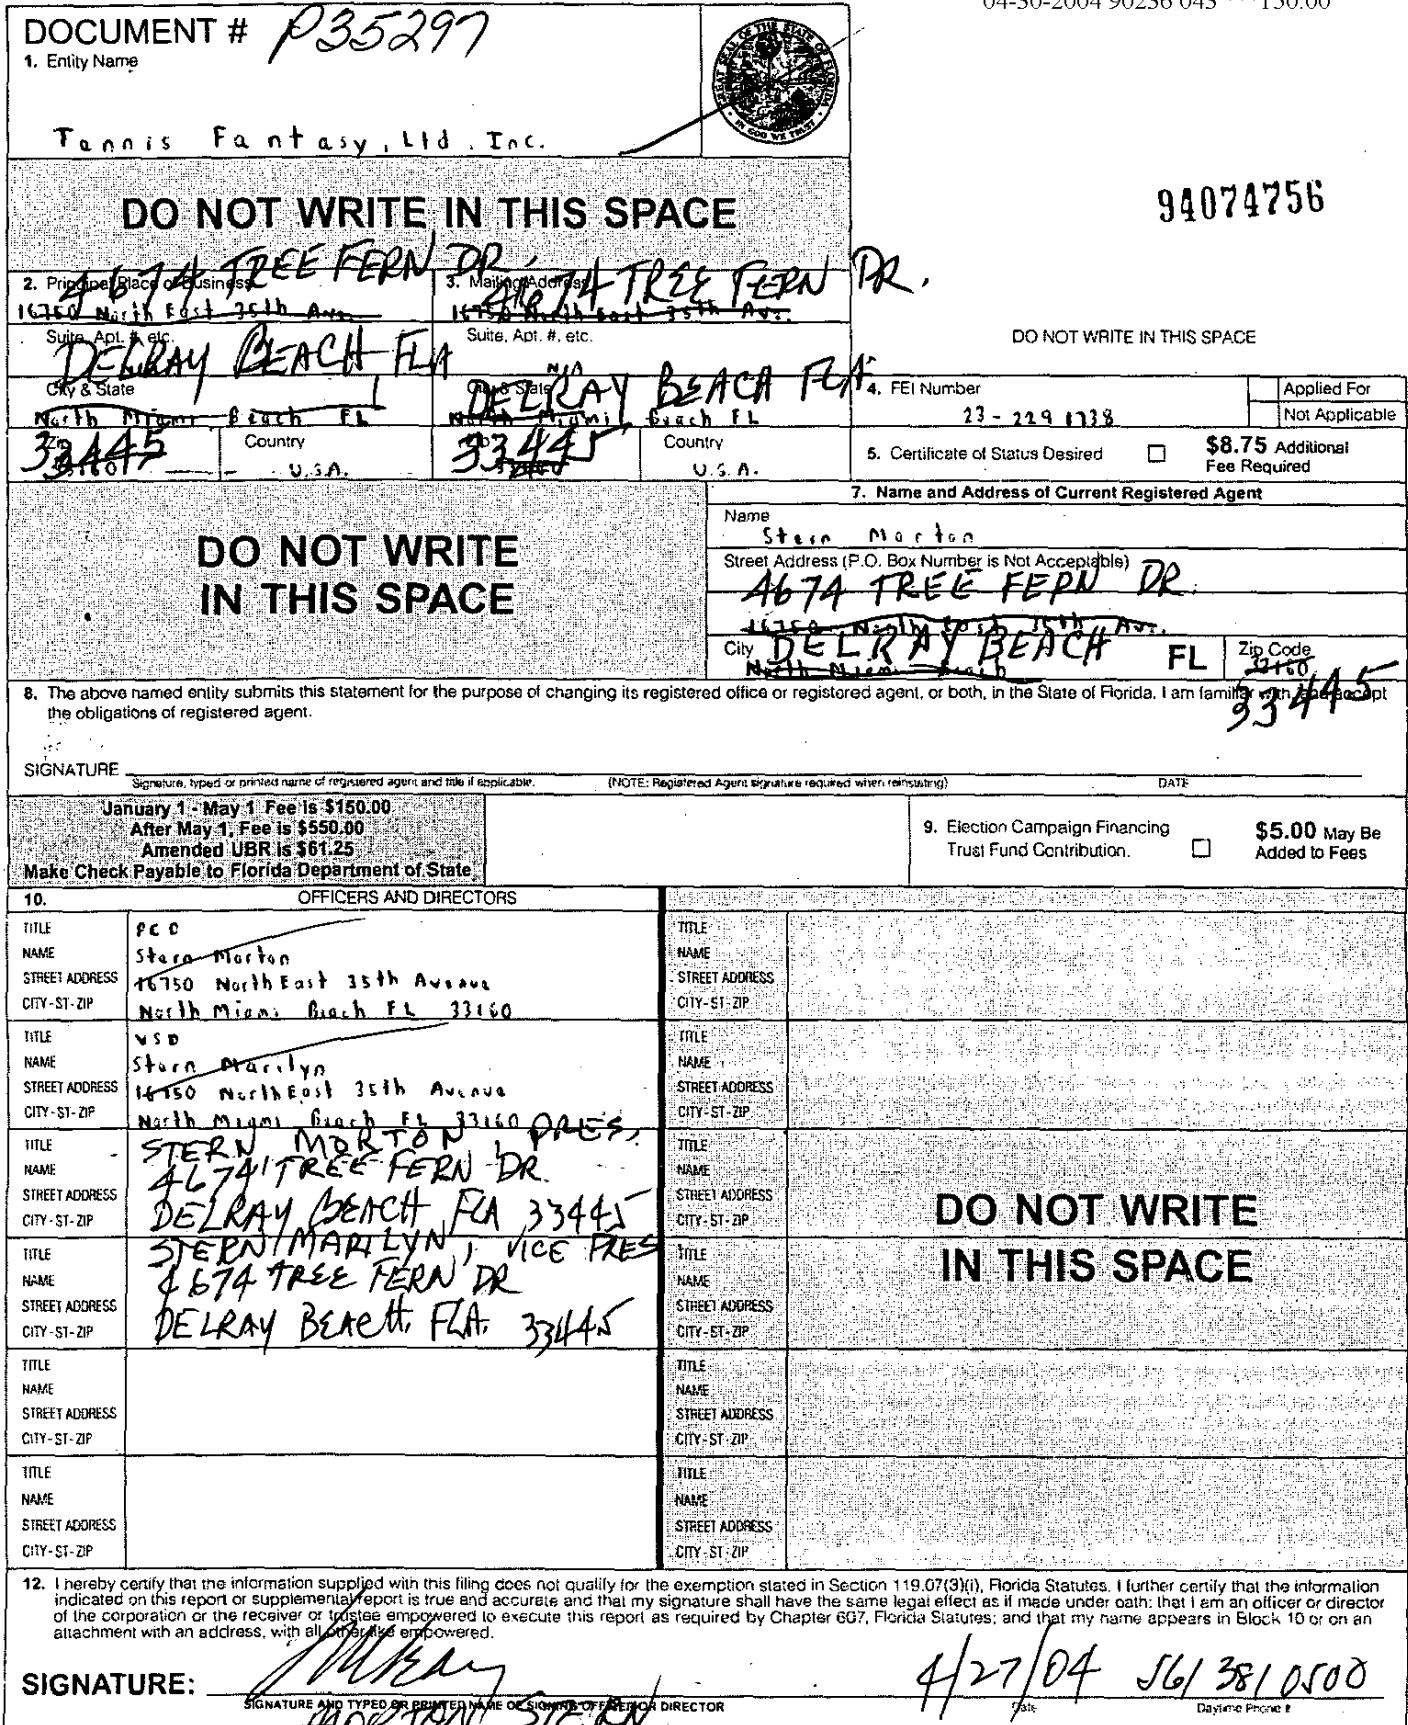 04-30-2004 90236 043 ***150.00
DOCUMENT # P35297
1. Entity Name
Tennis Fantasy, Ltd. Inc.
GREAT SEAL OF THE STATE OF FLORIDA
IN GOD WE TRUST
94074756
DO NOT WRITE IN THIS SPACE
4674 TREE FERN DR.
4674 TREE FERN DR.
2. Principal Place of Business
3. Mailing Address
16750 North East 35th Ave.
16750 North East 35th Ave.
DO NOT WRITE IN THIS SPACE
Suite, Apt. #, etc.
Suite, Apt. #, etc.
DELRAY BEACH, FLA
N/A
DELRAY BEACH FLA
City & State
City & State
North Miami Beach FL
North Miami Beach FL
4. FEI Number
23-2291738
Applied For
Not Applicable
Zip
33445
33160
Country
U.S.A.
Zip
33445
33160
Country
U.S.A.
5. Certificate of Status Desired
$8.75 Additional
Fee Required
DO NOT WRITE
IN THIS SPACE
7. Name and Address of Current Registered Agent
Name
Stern Morton
Street Address (P.O. Box Number is Not Acceptable)
4674 TREE FERN DR.
16750 North East 35th Ave.
City DELRAY BEACH FL Zip Code
North Miami Beach
33160
33445
8. The above named entity submits this statement for the purpose of changing its registered office or registered agent, or both, in the State of Florida. I am familiar with, and accept
the obligations of registered agent.
SIGNATURE
Signature, typed or printed name of registered agent and title if applicable.
(NOTE: Registered Agent signature required when reinstating)
DATE
January 1 - May 1 Fee is $150.00
After May 1, Fee is $550.00
Amended UBR is $61.25
Make Check Payable to Florida Department of State
9. Election Campaign Financing
Trust Fund Contribution.
$5.00 May Be
Added to Fees
10. OFFICERS AND DIRECTORS
TITLE PCD
NAME Stern Morton
STREET ADDRESS 16750 North East 35th Avenue
CITY-ST-ZIP North Miami Beach FL 33160
TITLE VSD
NAME Stern Marilyn
STREET ADDRESS 16750 North East 35th Avenue
CITY-ST-ZIP North Miami Beach FL 33160
TITLE STERN MORTON, PRES.
NAME 4674 TREE FERN DR.
STREET ADDRESS DELRAY BEACH, FLA 33445
CITY-ST-ZIP
TITLE STERN MARILYN, VICE PRES
NAME 4674 TREE FERN DR
STREET ADDRESS DELRAY BEACH, FLA. 33445
CITY-ST-ZIP
TITLE
NAME
STREET ADDRESS
CITY-ST-ZIP
TITLE
NAME
STREET ADDRESS
CITY-ST-ZIP
TITLE
NAME
STREET ADDRESS
CITY-ST-ZIP
TITLE
NAME
STREET ADDRESS
CITY-ST-ZIP
TITLE
NAME
STREET ADDRESS
CITY-ST-ZIP
TITLE
NAME
STREET ADDRESS
CITY-ST-ZIP
TITLE
NAME
STREET ADDRESS
CITY-ST-ZIP
TITLE
NAME
STREET ADDRESS
CITY-ST-ZIP
DO NOT WRITE
IN THIS SPACE
12. I hereby certify that the information supplied with this filing does not qualify for the exemption stated in Section 119.07(3)(i), Florida Statutes. I further certify that the information
indicated on this report or supplemental report is true and accurate and that my signature shall have the same legal effect as if made under oath; that I am an officer or director
of the corporation or the receiver or trustee empowered to execute this report as required by Chapter 607, Florida Statutes; and that my name appears in Block 10 or on an
attachment with an address, with all other like empowered.
SIGNATURE:
4/27/04 561 381 0500
SIGNATURE AND TYPED OR PRINTED NAME OF SIGNING OFFICER OR DIRECTOR
Date
Daytime Phone #
MORTON STERN